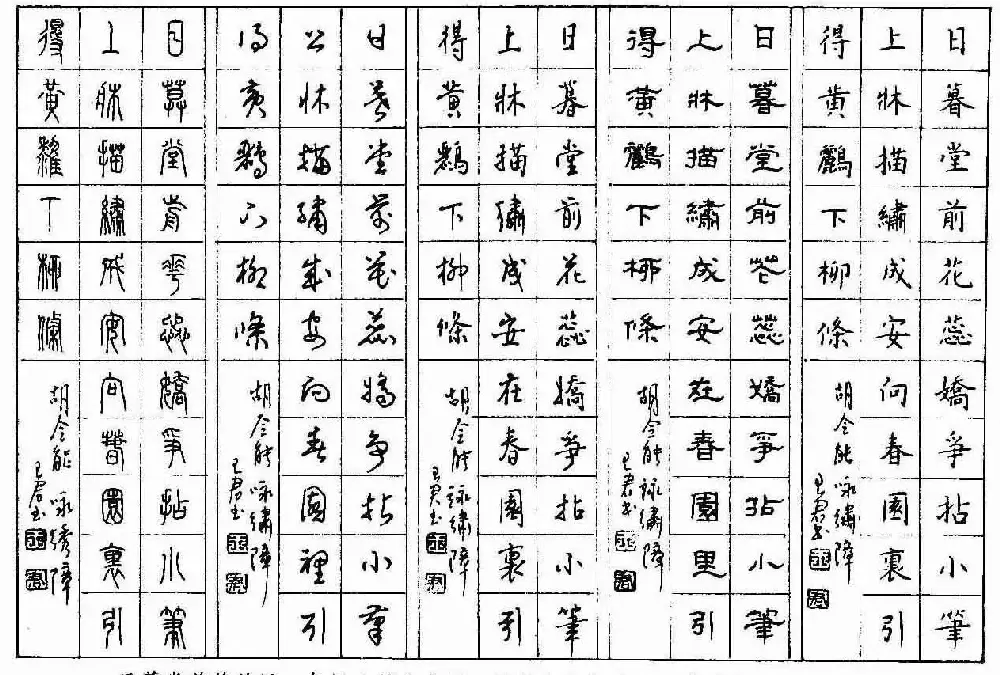 日暮堂前花蕊嬌爭拈小筆
上牀描繡成安向春園裏引
得黃鸝下柳條
胡令能咏繡障
王君书
日暮堂前花蕊嬌爭拈小筆
上牀描繡成安在春園里引
得黃鸝下柳條
胡令能詠繡障
王君书
日暮堂前花蕊嬌爭拈小筆
上牀描繡成安在春園裏引
得黃鸝下柳條
胡令能詠繡障
王君书
日暮堂前花蕊嬌爭拈小筆
上牀描繡成安向春園裡引
得黃鸝下柳條
胡令能咏繡障
王君书
日暮堂前花蕊嬌爭拈小筆
上牀描繡成安向春園裏引
得黃鸝下柳條
胡令能咏绣障
王君书